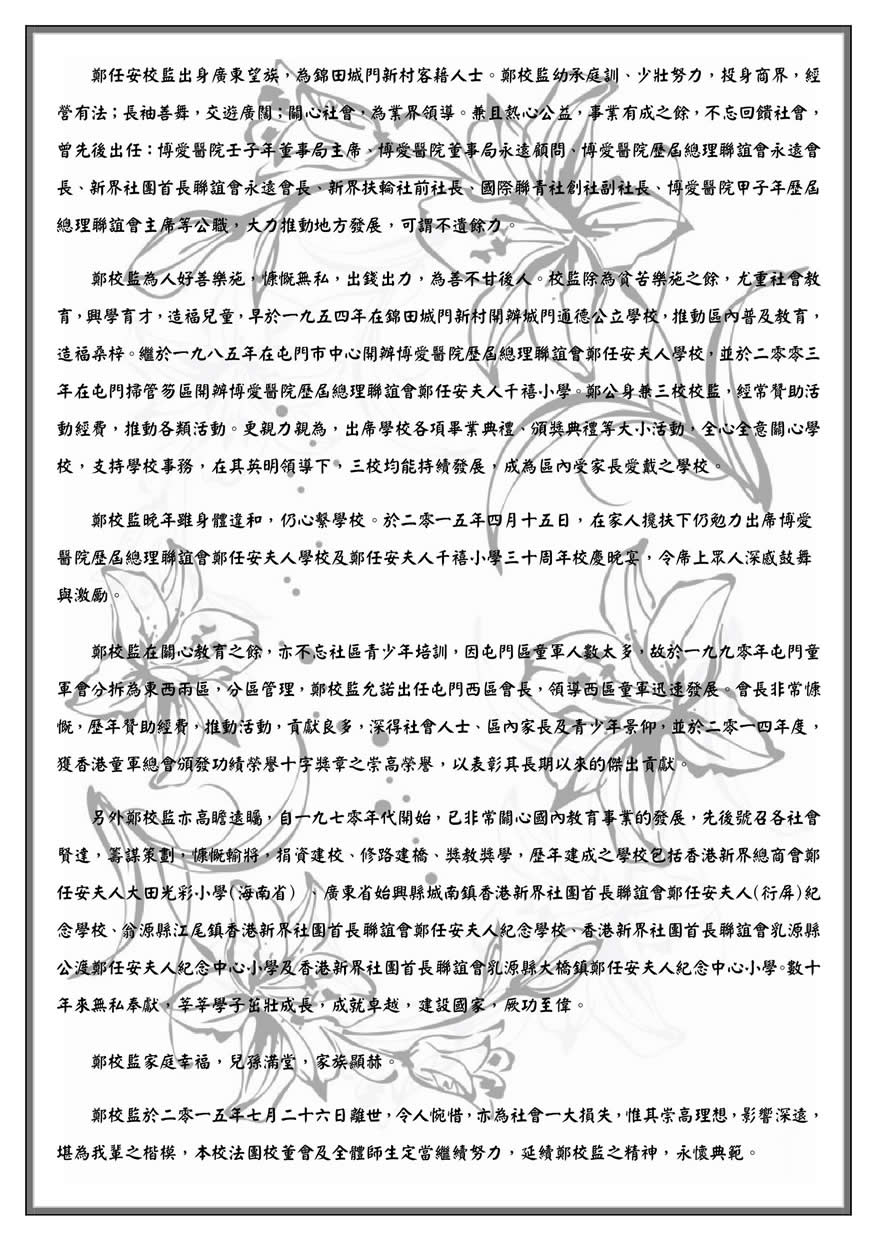 鄭任安校監出身廣東望族，為錦田城門新村客藉人士。鄭校監幼承庭訓、少壯努力，投身商界，經
營有法；長袖善舞，交遊廣闊；關心社會，為業界領導。兼且熱心公益，事業有成之餘，不忘回饋社會，
曾先後出任：博愛醫院壬子年董事局主席、博愛醫院董事局永遠顧問、博愛醫院歷屆總理聯誼會永遠會
長、新界社團首長聯誼會永遠會長、新界扶輪社前社長、國際聯青社創社副社長、博愛醫院甲子年歷屆
總理聯誼會主席等公職，大力推動地方發展，可謂不遺餘力。
鄭校監為人好善樂施，慷慨無私，出錢出力，為善不甘後人。校監除為貧苦樂施之餘，尤重社會教
育，興學育才，造福兒童，早於一九五四年在錦田城門新村開辦城門通德公立學校，推動區內普及教育，
造福桑梓。繼於一九八五年在屯門市中心開辦博愛醫院歷屆總理聯誼會鄭任安夫人學校，並於二零零三
年在屯門掃管笏區開辦博愛醫院歷屆總理聯誼會鄭任安夫人千禧小學。鄭公身兼三校校監，經常贊助活
動經費，推動各類活動。更親力親為，出席學校各項畢業典禮、頒獎典禮等大小活動，全心全意關心學
校，支持學校事務，在其英明領導下，三校均能持續發展，成為區內受家長愛戴之學校。
鄭校監晚年雖身體違和，仍心繫學校。於二零一五年四月十五日，在家人攙扶下仍勉力出席博愛
醫院歷屆總理聯誼會鄭任安夫人學校及鄭任安夫人千禧小學三十周年校慶晚宴，令席上眾人深感鼓舞
與激勵。
鄭校監在關心教育之餘，亦不忘社區青少年培訓，因屯門區童軍人數太多，故於一九九零年屯門童
軍會分拆為東西兩區，分區管理，鄭校監允諾出任屯門西區會長，領導西區童軍迅速發展。會長非常慷
慨，歷年贊助經費，推動活動，貢獻良多，深得社會人士、區內家長及青少年景仰，並於二零一四年度，
獲香港童軍總會頒發功績榮譽十字獎章之崇高榮譽，以表彰其長期以來的傑出貢獻。
另外鄭校監亦高瞻遠矚，自一九七零年代開始，已非常關心國內教育事業的發展，先後號召各社會
賢達，籌謀策劃，慷慨輸將，捐資建校、修路建橋、獎教獎學，歷年建成之學校包括香港新界總商會鄭
任安夫人大田光彩小學(海南省) 、廣東省始興縣城南鎮香港新界社團首長聯誼會鄭任安夫人(衍屏)紀
念學校、翁源縣江尾鎮香港新界社團首長聯誼會鄭任安夫人紀念學校、香港新界社團首長聯誼會乳源縣
公渡鄭任安夫人紀念中心小學及香港新界社團首長聯誼會乳源縣大橋鎮鄭任安夫人紀念中心小學。數十
年來無私奉獻，莘莘學子茁壯成長，成就卓越，建設國家，厥功至偉。
鄭校監家庭幸福，兒孫滿堂，家族顯赫。
鄭校監於二零一五年七月二十六日離世，令人惋惜，亦為社會一大損失，惟其崇高理想，影響深遠，
堪為我輩之楷模，本校法團校董會及全體師生定當繼續努力，延續鄭校監之精神，永懷典範。